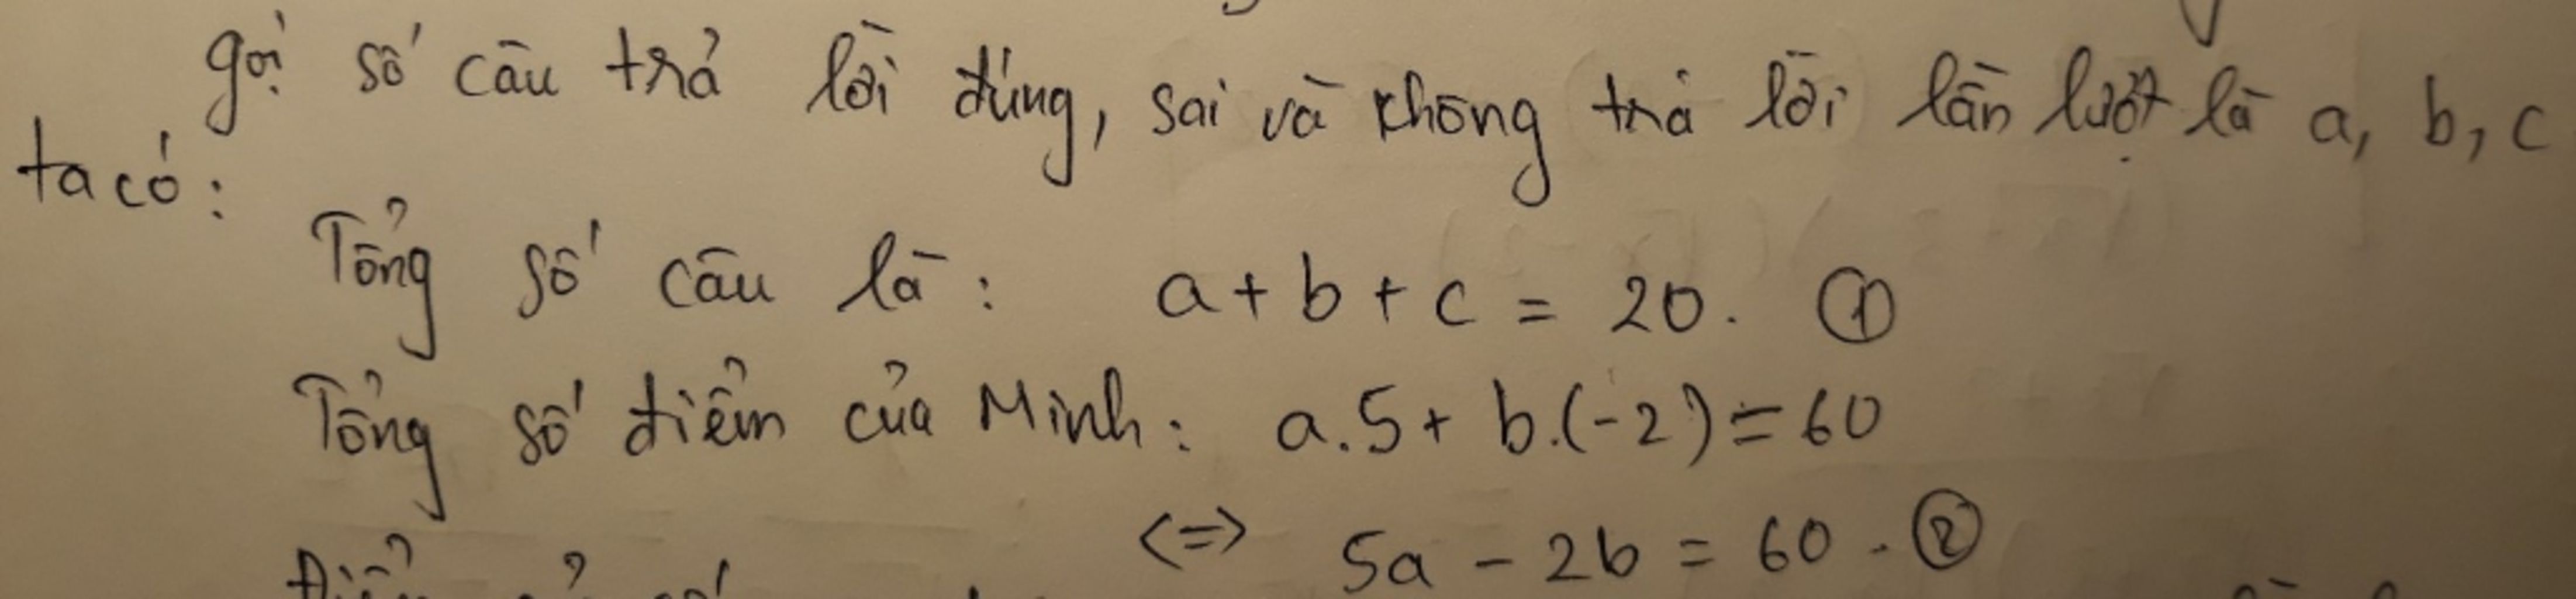 gọi số câu trả lời đúng, sai và không trả lời lần lượt là a, b, c
ta có:
Tổng số câu là: a + b + c = 20. ①
Tổng số điểm của Minh: a.5 + b.(-2) = 60
<=> 5a - 2b = 60. ②